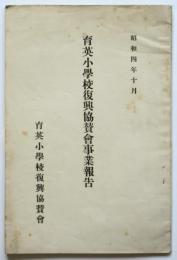 昭和四年十月
育英小學校復興協贊會事業報告
育英小學校復興協贊會